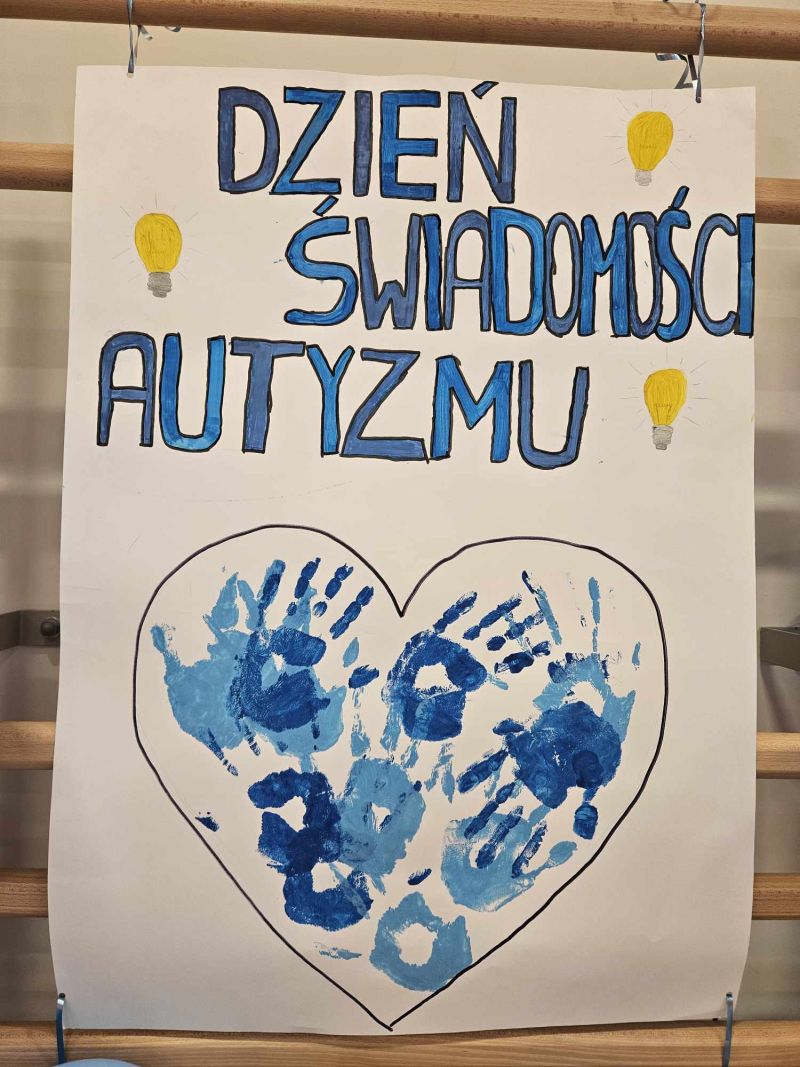 DZIEŃ
ŚWIADOMOŚCI
AUTYZMU